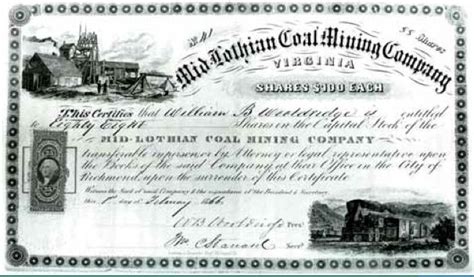 No. 41
88 Shares
Mid-Lothian Coal Mining Company
VIRGINIA
SHARES $100 EACH
This Certifies that William B Wooldridge is entitled
to Eighty Eight Shares in the Capital Stock of the
MID-LOTHIAN COAL MINING COMPANY
transferable in person or by Attorney or legal representative upon
the Books of the said Company at their Office in the City of
Richmond, upon the surrender of this Certificate.
Witness the Seal of said Company & the signatures of the President & Secretary
this 1st day of February 1866.
WB Wooldridge Pres't
Wm